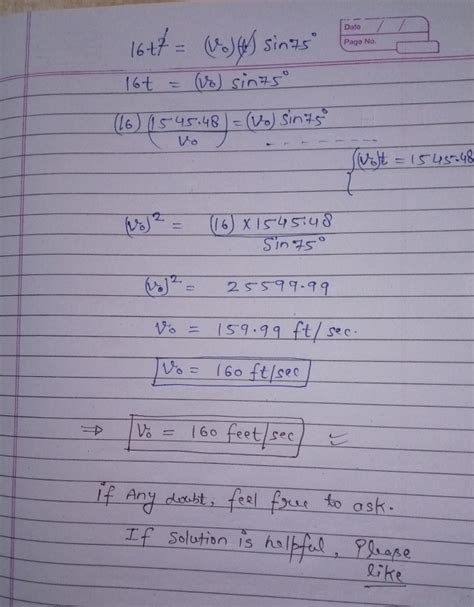 Date / /
Page No.
16t² = (v₀)(t) sin75°
16t = (v₀) sin75°
(16) (1545.48/v₀) = (v₀) sin75°
{(v₀)t = 1545.48
(v₀)² = (16) × 1545.48 / Sin75°
(v₀)² = 25599.99
v₀ = 159.99 ft/sec.
v₀ = 160 ft/sec
⇒ v₀ = 160 feet/sec ✓
if Any doubt, feel free to ask.
If Solution is helpful, Please
like